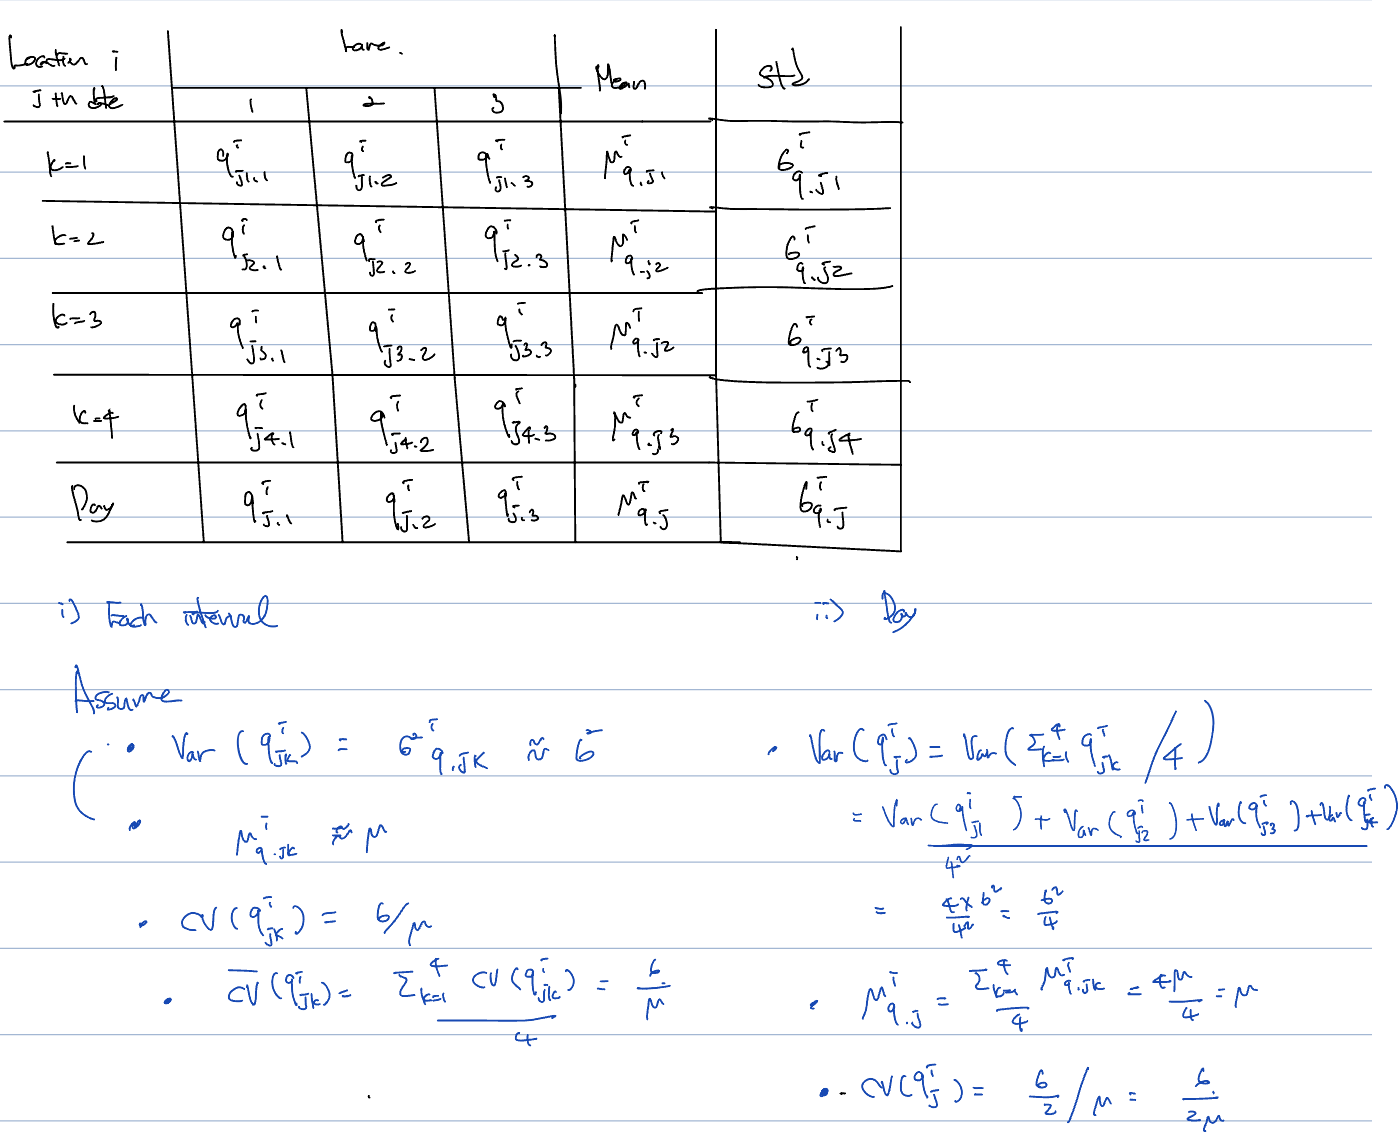 Location i Lane. Mean std
j th date 1 2 3
k=1 q^i_{j1.1} q^i_{j1.2} q^i_{j1.3} μ^i_{q.j1} σ^i_{q.j1}
k=2 q^i_{j2.1} q^i_{j2.2} q^i_{j2.3} μ^i_{q.j2} σ^i_{q.j2}
k=3 q^i_{j3.1} q^i_{j3.2} q^i_{j3.3} μ^i_{q.j2} σ^i_{q.j3}
k=4 q^i_{j4.1} q^i_{j4.2} q^i_{j4.3} μ^i_{q.j3} σ^i_{q.j4}
Day q^i_{j.1} q^i_{j.2} q^i_{j.3} μ^i_{q.j} σ^i_{q.j}
i) Each interval
Assume
• Var(q^i_{jk}) = σ^{2 i}_{q.jk} ≈ σ^2
• μ^i_{q.jk} ≈ μ
• CV(q^i_{jk}) = σ/μ
• \overline{CV}(q^i_{jk}) = Σ_{k=1}^4 CV(q^i_{jk}) / 4 = σ/μ
ii) Day
• Var(q^i_j) = Var(Σ_{k=1}^4 q^i_{jk} / 4)
= Var(q^i_{j1}) + Var(q^i_{j2}) + Var(q^i_{j3}) + Var(q^i_{j4}) / 4^2
= 4×σ^2 / 4^2 = σ^2 / 4
• μ^i_{q.j} = Σ_{k=1}^4 μ^i_{q.jk} / 4 = 4μ / 4 = μ
• - CV(q^i_j) = σ/2 / μ = σ / 2μ